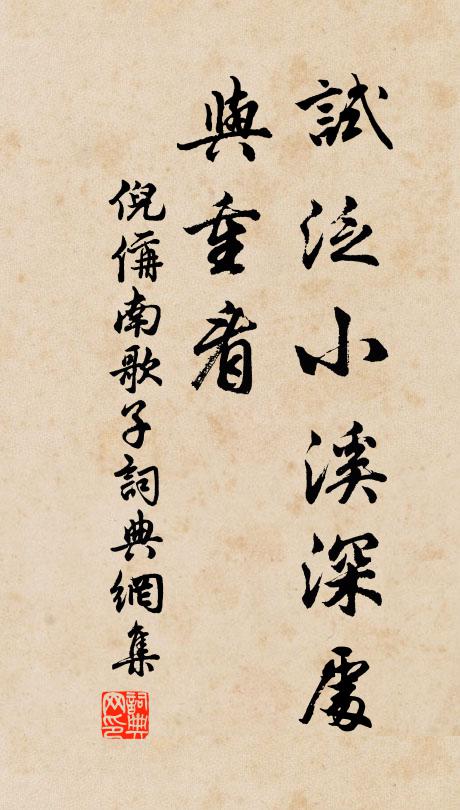 試泛小溪深處
與重看
倪偁南歌子詞典網集
詞典
网印